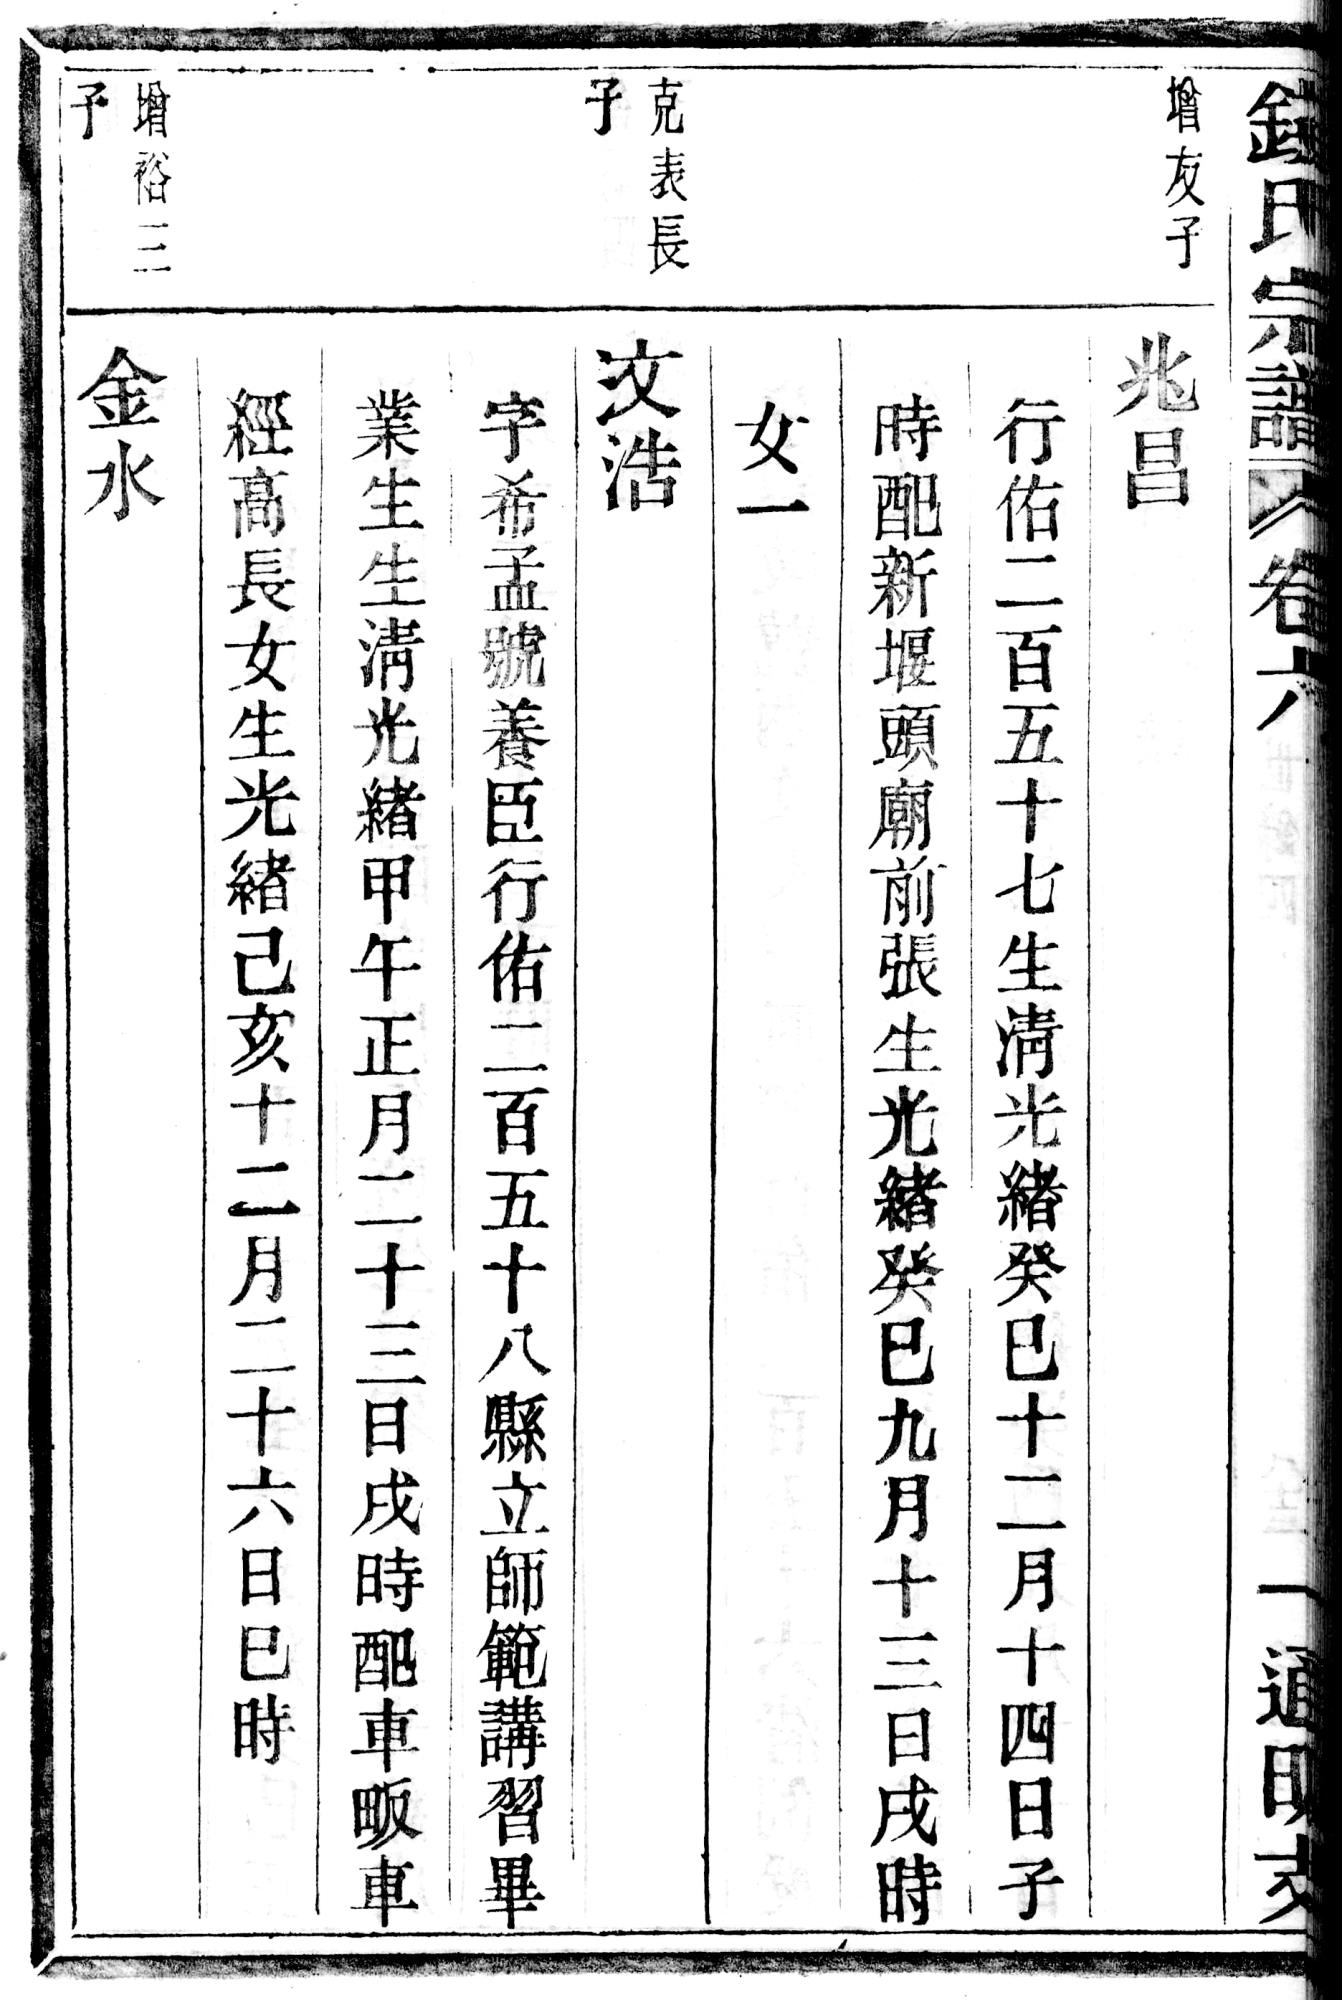 錢氏宗譜 卷六 一 道明支
增友子
兆昌
行佑二百五十七生清光緒癸巳十二月十四日子
時配新堰頭廟前張生光緒癸巳九月十三日戌時
女一
克表長
子
文浩
字希孟號養臣行佑二百五十八縣立師範講習畢
業生生清光緒甲午正月二十三日戌時配車畈車
經高長女生光緒己亥十二月二十六日巳時
增裕三
子
金水